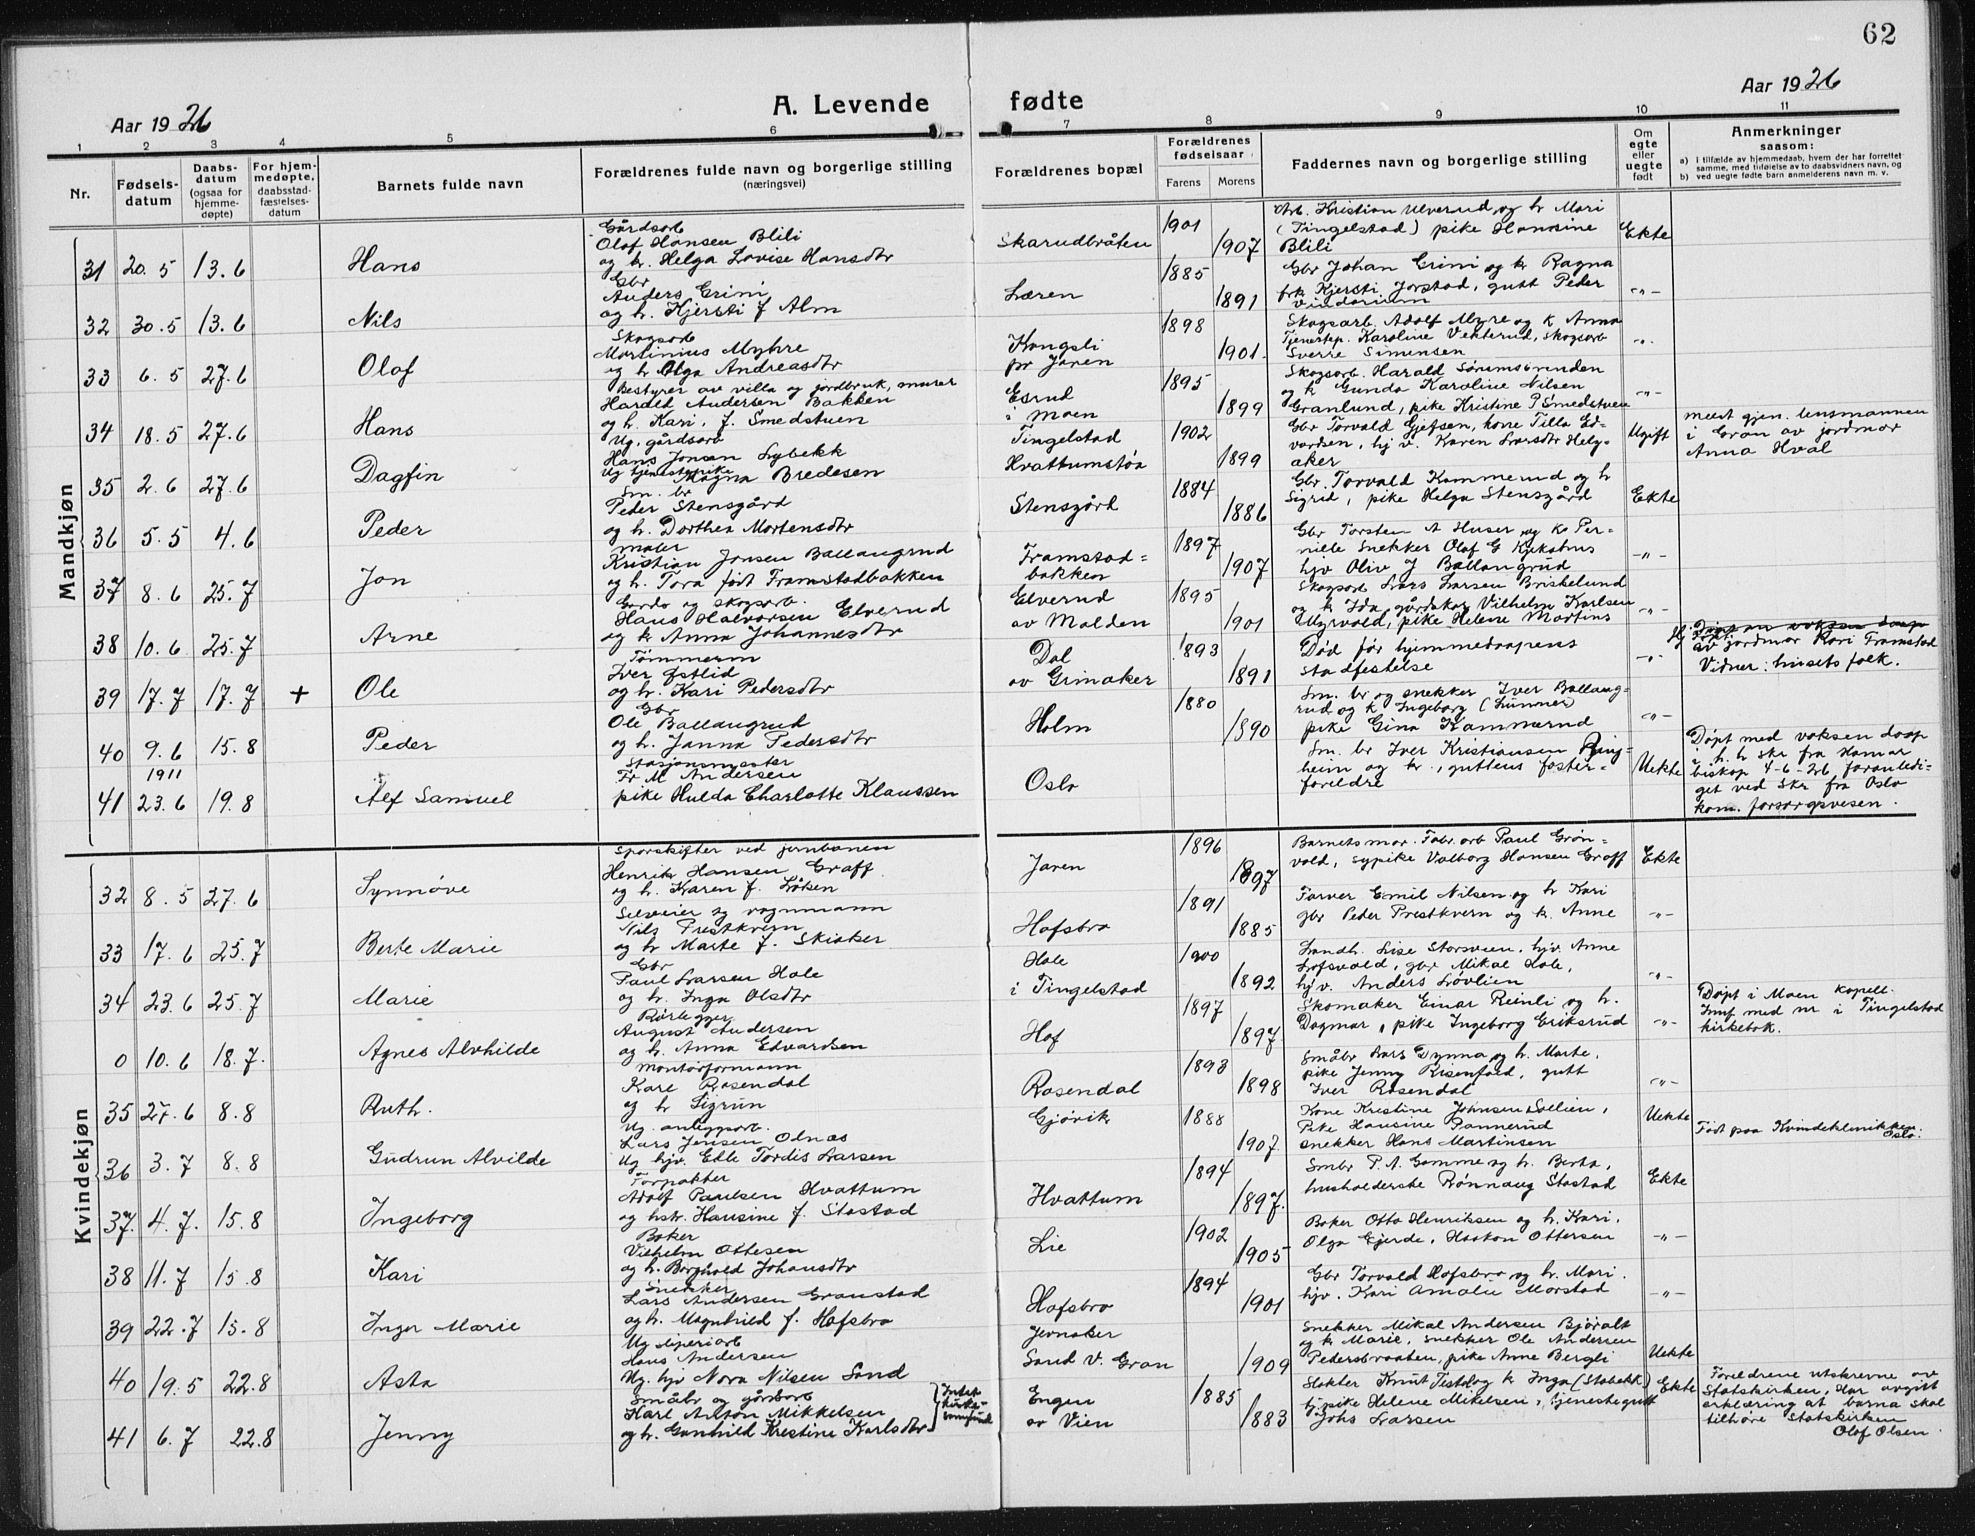 62
Aar 1926 A. Levende fødte Aar 1926
1 2 3 4 5 6 7 8 9 10 11
Nr. Fødsels-datum Daabs-datum (ogsaa for hjemme-døpte) For hjem-medøpte, daabsstad-fæstelses-datum Barnets fulde navn Forældrenes fulde navn og borgerlige stilling (næringsvei) Forældrenes bopæl Forældrenes fødselsaar Farens Morens Faddernes navn og borgerlige stilling Om egte eller uegte født Anmerkninger saasom:
a) i tilfælde av hjemmedaab, hvem der har forrettet samme, med tilføielse av to daabsvidners navn, og
b) ved uegte fødte barn anmelderens navn m. v.
Mandkjøn
31 20.5 13.6 Hans Gårdsarb Olaf Hansen Blili og h. Helga Lovise Hansdtr Skarudbråten 1901 1907 Arb. Kristian Ulverud og h Mari (Tingelstad) pike Hansine Blili Ekte
32 30.5 13.6 Nils Gbr Anders Grini og h. Kjersti f Alm Læren 1885 1891 Gbr Johan Grini og k Ragna frk Kjersti Jorstad, gutt Peder -"-
33 6.5 27.6 Olaf Skogsarb Martinius Myhre og h Olga Andreasdtr Kongsli pr Jaren 1898 1901 Skogsarb. Adolf Myre og k Anna Tjenestep. Karoline Vekterud, Skogsarb Sverre Simensen -"-
34 18.5 27.6 Hans Bestyrer av villa og jordbruk, murer Harald Andersen Bakken og h. Kari, f. Smedstuen Esrud i Moen 1895 1899 Skogsarb. Harald Sørumsenden og k Gunda Karoline Nilsen Granlund, pike Kristine P Smedstuen -"-
35 2.6 27.6 Dagfin Ug. gårdsarb Hans Jonsen Lybekk Ug tjenestepike Magna Bredesen Tingelstad Hvattumstøa 1902 1899 Gbr Torvald Gjefsen, kone Tilla Edvardsen, hj v. Karen Larsdtr Helgaker Ugift meldt gjen. lensmannen i Gran av jordmor Anna Hval
36 5.5 4.6 Peder Sm. br Peder Stensgård og h. Dorthea Mortensdtr Stensgård 1884 1886 Gbr. Torvald Kammerud og h Sigrid, pike Helga Stensgård Ekte
37 8.6 25.7 Jon maler Kristian Jonsen Ballangrud og h. Tora født Framstadbakken Framstad=bakken 1897 1907 Gbr Torsten A Huser og k Pernille Snekker Olaf G Kjekshus hjv Oliv J Ballangrud -"-
38 10.6 25.7 Arne Gards og skogsarb. Hans Halvorsen Elverud og k Anna Johannesdtr Elverud av Molden 1895 1901 Skogsarb Lars Larsen Briskelund og k Ida, gårdskar Vilhelm Karlsen Myrvold, pike Helene Martins -"-
39 17.7 17.7 + Ole Tømmerm Iver Østlid og h. Kari Pedersdtr Dal av Grinaker 1893 1891 Død før hjemmedaapens stadfestelse -"- av jordmor Kari Framstad Vidner: husets folk.
40 9.6 15.8 Peder Gbr Ole Ballangrud og h. Janna Pedersdtr Holm 1880 1890 Sm. br og snekker Iver Ballangrud og k Ingeborg (Lunner) pike Gina Kammerud -"-
41 1911 23.6 19.8 Alf Samuel Stasjonsmester Fr M Andersen pike Hulda Charlotte Klaussen Oslo Sm. br Iver Kristiansen Ringheim og k., guttens fosterforeldre Uekte Døpt med voksen daap i h. h. skr fra Hamar biskop 4-6-26 foranlediget ved skr fra Oslo kom. forsorgsvesen.
Kvindekjøn
32 8.5 27.6 Synnøve Sporskifter ved jernbanen Henrik Hansen Graff og h. Karen f. Løken Jaren 1896 1897 Barnets mor. Fabr. arb Paul Grønvold, sypike Valborg Hansen Graff Ekte
33 17.6 25.7 Berte Marie Selveier og vognmann Nils Prestkvern og h Marte f. Skiaker Hofsbro 1891 1885 Farver Emil Nilsen og h Kari gbr Peder Prestkvern og k. Anne -"-
34 23.6 25.7 Marie Gbr Paul Larsen Hole og h. Inga Olsdtr Hole i Tingelstad 1900 1892 Landh. Lise Storsveen, hjv. Anne Lofsvold, gbr Mikal Hole, hjv. Anders Løvlien -"-
0 10.6 18.7. Agnes Alvhilde Rørlegger August Andersen og h. Anna Edvardsen Hof 1897 1897 Skomaker Einar Reinli og h. Dagmar, pike Ingeborg Eriksrud -"- Døpt i Moen kapell. Innf med nr i Tingelstad kirkebok.
35 27.6 8.8 Ruth. Montørformann Kare Rosendal og h Sigrun Rosendal 1893 1898 Småbr Lars Dynna og h. Marte, pike Jenny Risenfald, gutt Iver Rosendal -"-
36 3.7 8.8 Gudrun Alvilde Ug. anleggsarb. Lars Jensen Odnæs Ug hjv. Elle Tordis Larsen Gjøvik 1888 1907 Kone Kristine Johnsen Sollien, Pike Hansine Pannerud snekker Hans Martinsen Uekte Født paa Kvindeklinikken Oslo.
37. 4.7. 15.8 Ingeborg Forpakter Adolf Paulsen Hvattum og hstr. Hansine f. Stastad Hvattum 1894 1897. Smbr P. A. Gamme og h. Berta, husholderske Rønnaug Stastad Ekte
38 11.7 15.8 Kari Baker Vilhelm Ottesen og h. Borghild Johansdtr Lie 1902 1905 Baker Otto Henriksen og h. Kari, Olga Gjerde, Haakon Ottersen -"-
39 22.7 15.8 Inger Marie Snekker Lars Andersen Granstad og h. Magnhild f. Hofsbro Hofsbro 1894 1901 Gbr Torvald Hofsbro og h. Mari. hjv. Kari Amalie Morstad -"-
40 19.5 22.8 Asta Ug sliperiarb Hans Andersen Ug. hjv Nora Nilsen Sand Jevnaker Sand V. Gran 1909 Snekker Mikal Andersen Bjøralt og k Marie, snekker Ole Andersen Pedersbraaten, pike Anne Bergli Uekte
41 6.7 22.8 Jenny Småbr og gårdsarb Karl Anton Mikkelsen og h. Gunhild Kristine Karlsdtr Intet kirkesamfund Engen av Vien 1885 1883 Knut k Inga (Stabekk) pike Helene Mikelsen, tjenestegutt Johs Larsen Ekte Foreldrene utskrevne av Statskirken, har avgitt erklæring at barna skal tilhøre Statskirken Olaf Olsen.